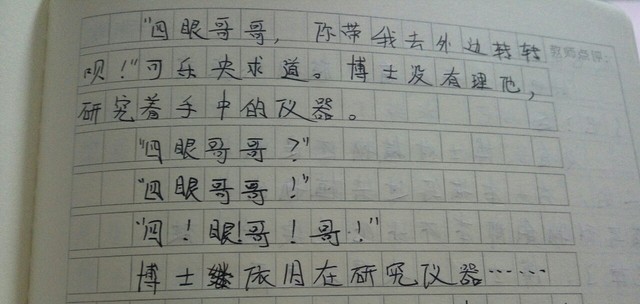 “四眼哥哥，你带我去外边转转
呗！”可乐央求道。博士没有理他，
研究着手中的仪器。
“四眼哥哥？”
“四眼哥哥！”
“四！眼！哥！哥！”
博士依旧在研究仪器……
教师点评：